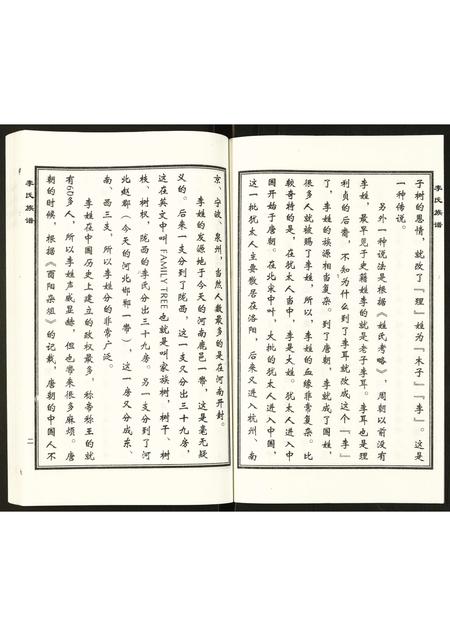 李氏族谱
子树的恩情，就改了『理』姓为『木子』『李』。这是
一种传说。
另外一种说法是根据《姓氏考略》，周朝以前没有
李姓，最早见于史籍姓李的就是老子李耳。李耳也是理
利贞的后裔，不知为什么到了李耳就改成这个『李』
了，李姓的族源相当复杂。到了唐朝，李就成了国姓，
很多人就被赐了李姓，所以，李姓的血缘非常复杂。比
较奇特的是，在犹太人当中，李是大姓。犹太人进入中
国开始于唐朝。在北宋中叶，大批的犹太人进入中国，
这一批犹太人主要散居在洛阳，后来又进入杭州、南
京、宁波、泉州，当然人数最多的是在河南开封。
李姓的发源地于今天的河南鹿邑一带，这是毫无疑
义的。后来一支分到了陇西，这一支又分出三十九房，
这在英文中叫FAMILY TREE也就是叫家族树，树干、树
枝、树权，陇西的李氏分出三十九房。另一支分到了河
北赵郡（今天的河北邯郸一带），这一房又分成东、
南、西三支，所以李姓分的非常广泛。
李姓在中国历史上建立的政权最多，称帝称王的就
有60多人，所以李姓声威显赫，但也带来很多麻烦。唐
朝的时候，根据《酉阳杂俎》的记载，唐朝的中国人不
李氏族谱
二